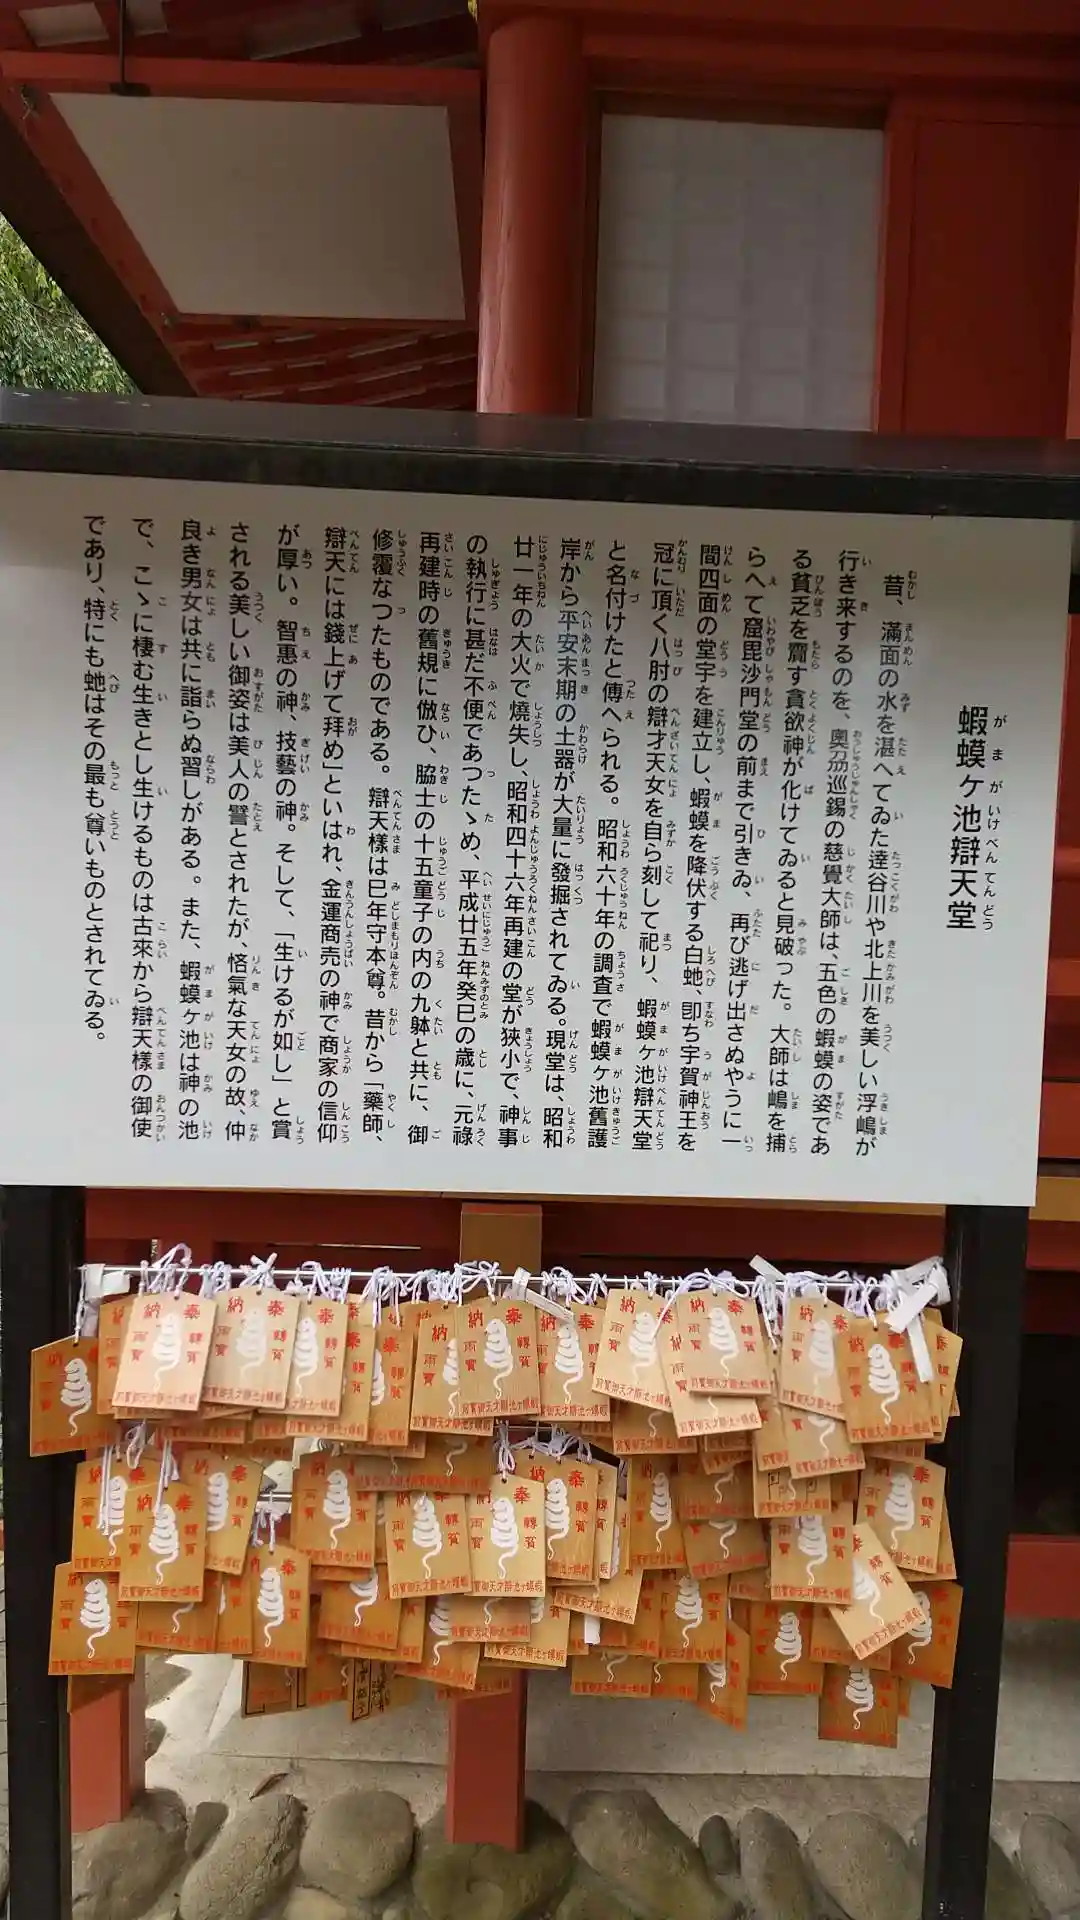 蝦蟆ヶ池辯天堂
昔、滿面の水を湛へてゐた達谷川や北上川を美しい浮嶋が
行き来するのを、奧刕巡錫の慈覺大師は、五色の蝦蟆の姿であ
る貧乏を齎す貪欲神が化けてゐると見破った。大師は嶋を捕
らへて窟毘沙門堂の前まで引きゐ、再び逃げ出さぬやうに一
間四面の堂宇を建立し、蝦蟆を降伏する白虵、卽ち宇賀神王を
冠に頂く八肘の辯才天女を自ら刻して祀り、蝦蟆ヶ池辯天堂
と名付けたと傳へられる。昭和六十年の調査で蝦蟆ヶ池舊護
岸から平安末期の土器が大量に發掘されてゐる。現堂は、昭和
廿一年の大火で燒失し、昭和四十六年再建の堂が狹小で、神事
の執行に甚だ不便であつたゝめ、平成廿五年癸巳の歳に、元祿
再建時の舊規に倣ひ、脇士の十五童子の内の九躰と共に、御
修覆なつたものである。辯天樣は巳年守本尊。昔から「藥師、
辯天には錢上げて拜め」といはれ、金運商売の神で商家の信仰
が厚い。智惠の神、技藝の神。そして、「生けるが如し」と賞
される美しい御姿は美人の譬とされたが、悋氣な天女の故、仲
良き男女は共に詣らぬ習しがある。また、蝦蟆ヶ池は神の池
で、こゝに棲む生きとし生けるものは古來から辯天樣の御使
であり、特にも虵はその最も尊いものとされてゐる。
奉納
轉貧
雨寶